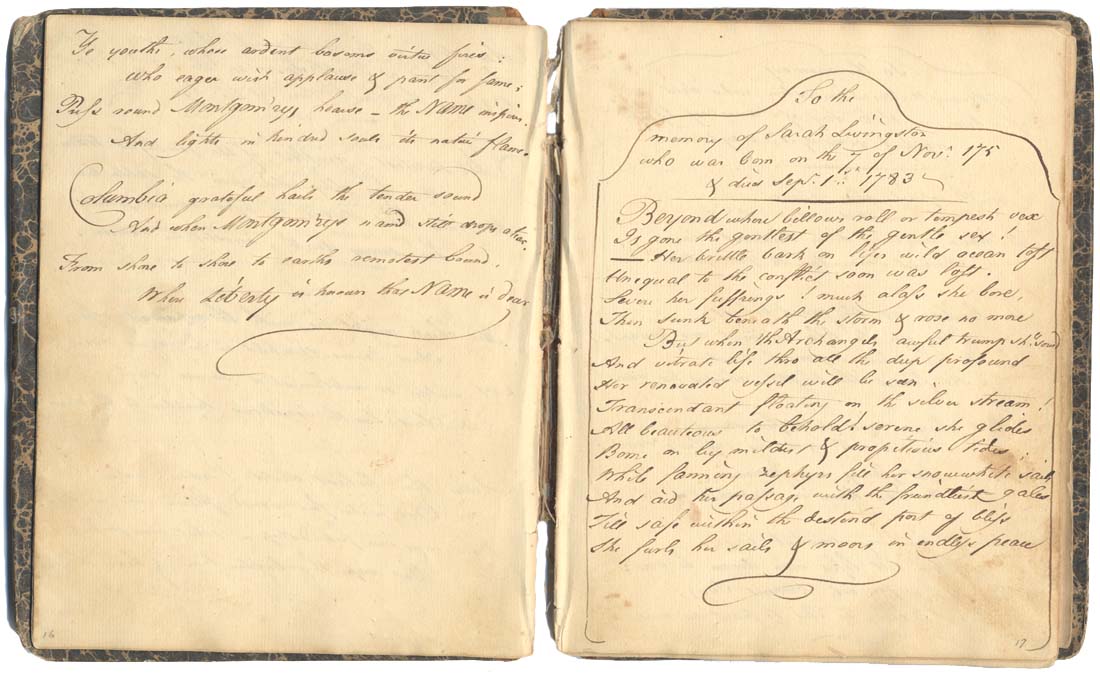 Ye youths, whose ardent bosoms virtue fires;
Who eager wish applause & pant for fame;
Press round Montgom'rys hearse – the NAME inspires
And lights in kindred souls its native flame.
Columbia grateful hails the tender sound
And when Montgom'rys nam'd still drops a tear,
From shore to shore to earths remotest bound,
Where Liberty is known this NAME is dear
16
To the
memory of Sarah Livingston
who was born on the 7 of Nov. 175
& died Sept. 1st 1783
Beyond where billows roll or tempests vex
Is gone the gentlest of the gentle sex!
— Her brittle bark on lifes wild ocean tost
Unequal to the conflict soon was lost.
Severe her suff'rings! much alass she bore,
Then sunk beneath the storm & rose no more
But when th'Archangels awful trump shall sound
And vibrate life thro all the deep profound
Her renovated vessel will be seen
Transcendant floating on the silver stream!
All beauteous to behold! serene she glides
Borne on by mildest & propitious tides;
While fanning zephyrs fill her snowwhite sails
And aid her passage with the friendliest gales
Till safe within the destin'd port of bliss
She furls her sails & moors in endless peace
17